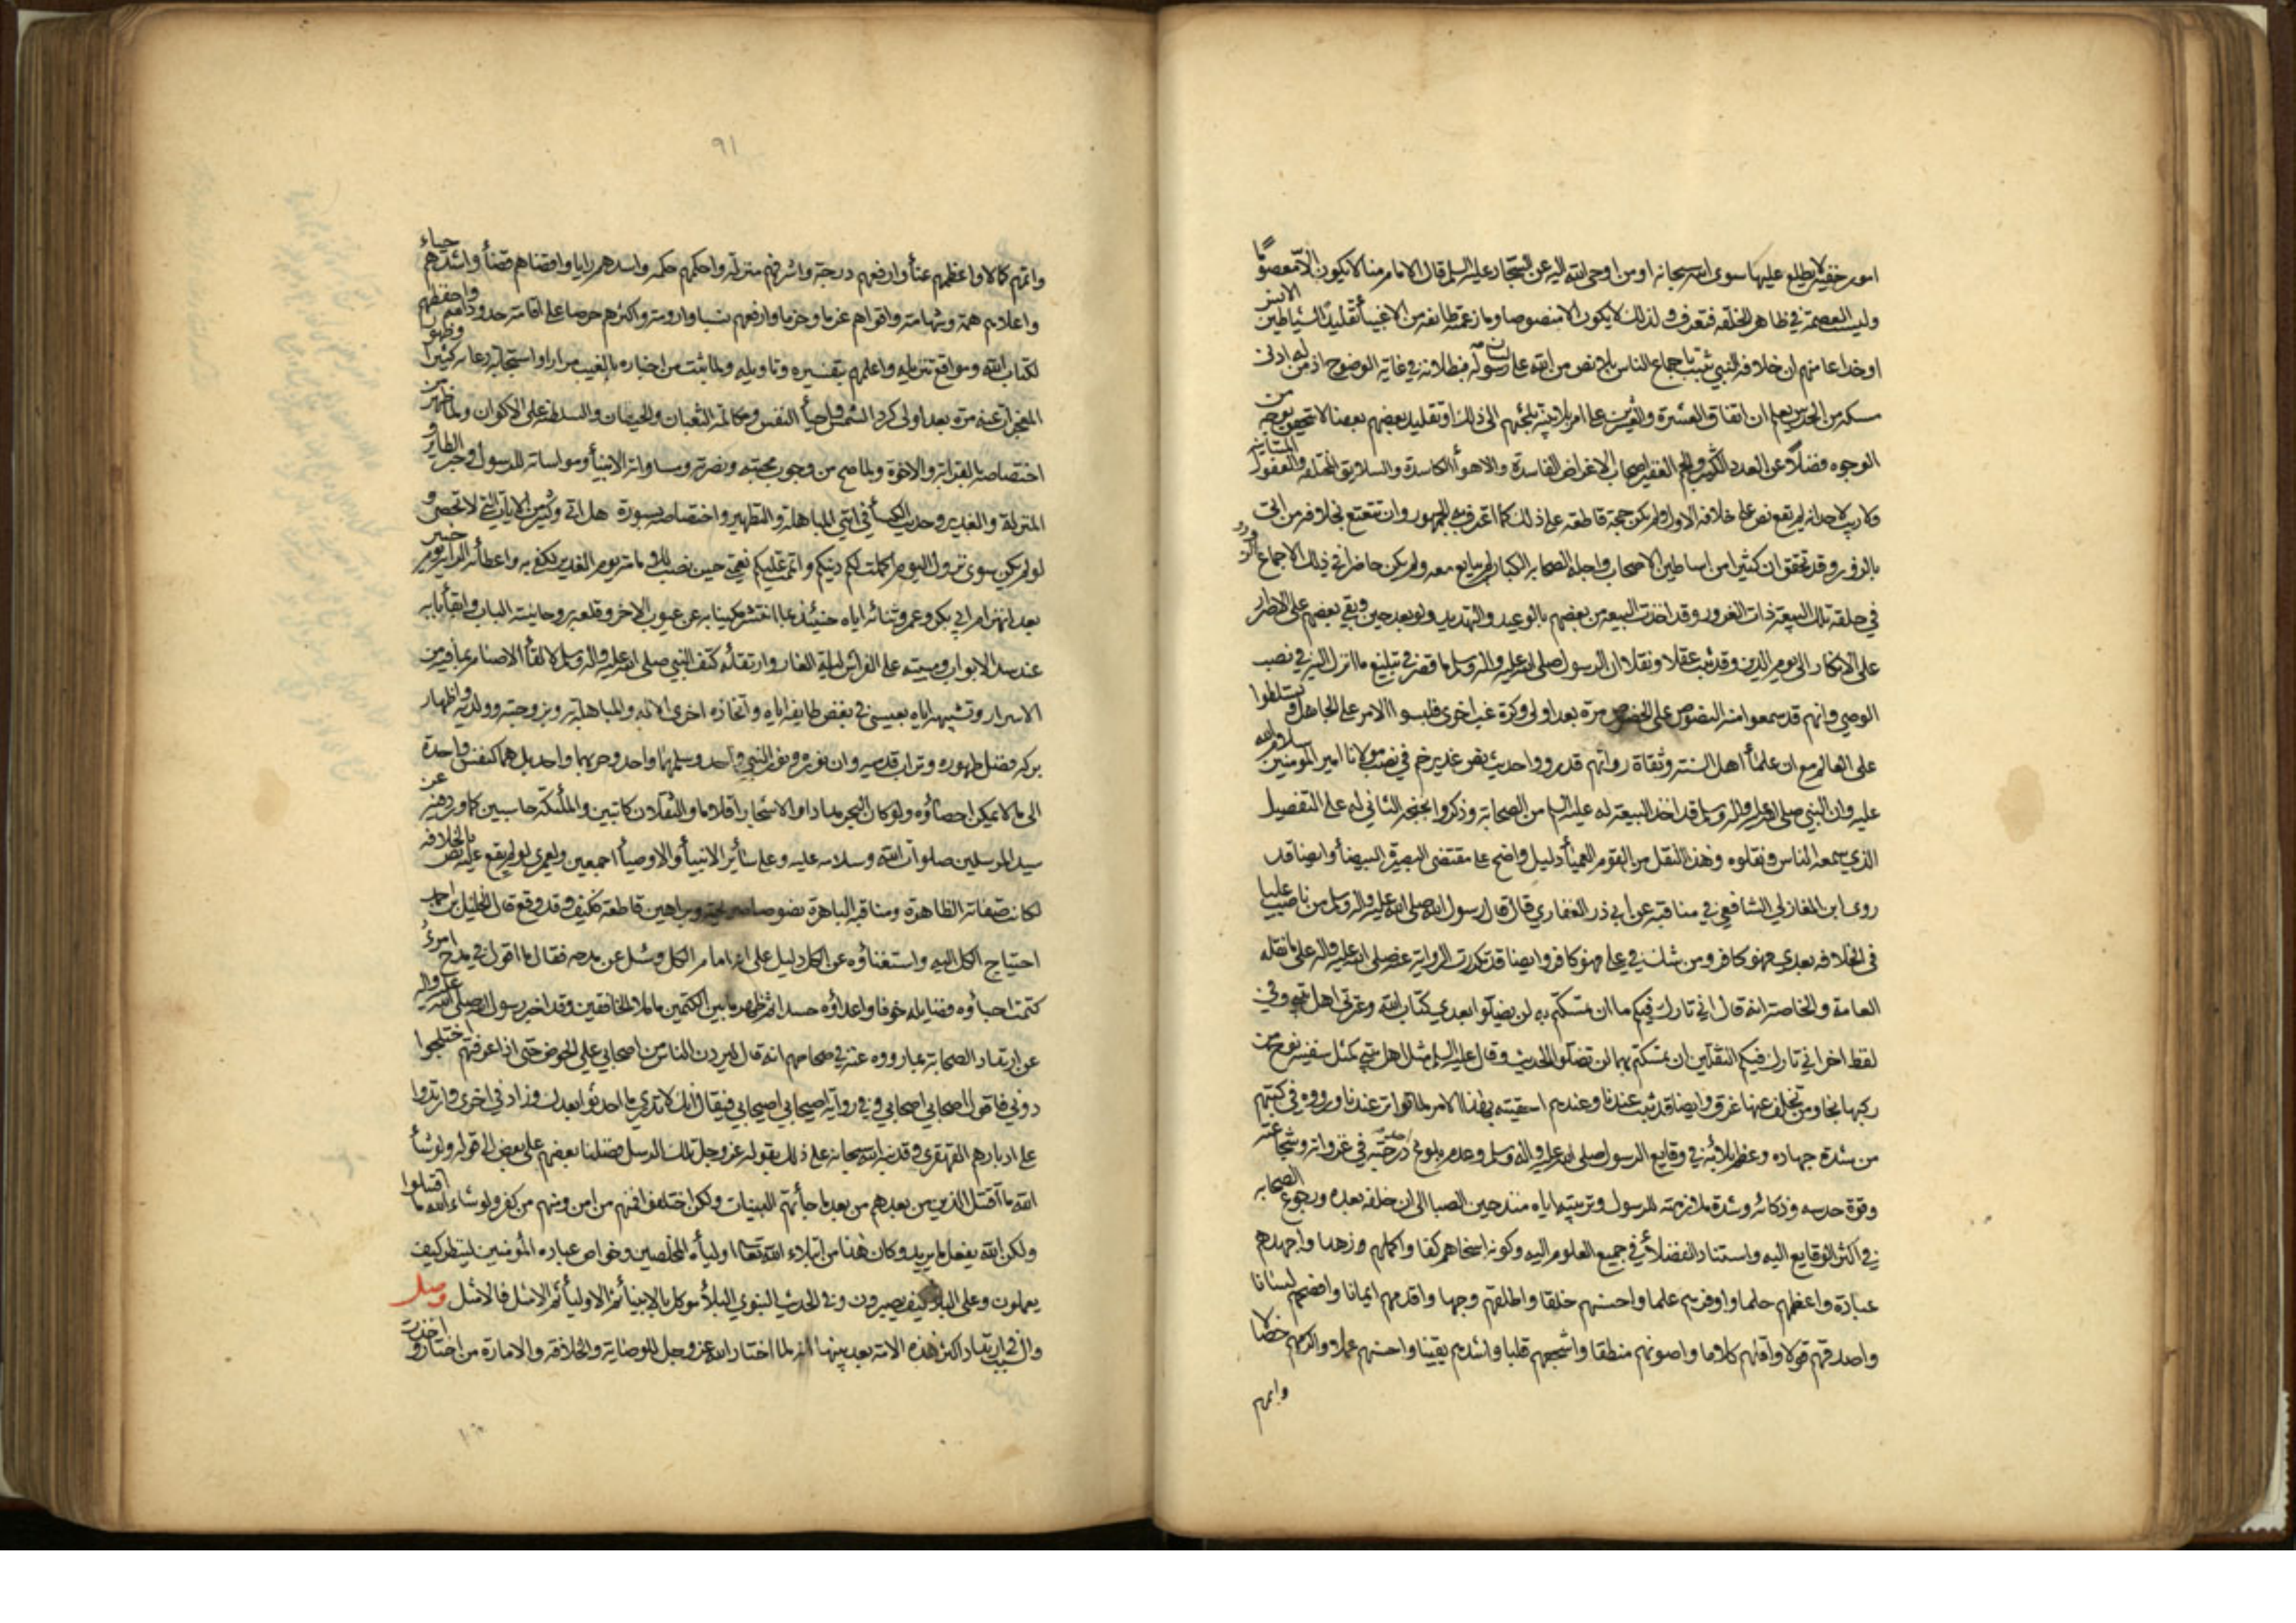 امور خفية لا يطلع عليها سوى الله سبحانه او من اوحى الله اليه عن السجاد عليه السلم قال الامام منا لا يكون الا معصوما
وليست العصمة في ظاهر الخلقة فتعرف ولذلك لا يكون الا منصوصا وما زعمته طائفة من الاغبيأ تقليدا لشياطين الانس
او خداعا منهم ان خلافة النبي تثبت باجماع الناس بلا نص من الله على لسان رسوله فبطلانه في غاية الوضوح اذ من له ادنى
مسكة من الحدس يعلم ان اتفاق العشرة والعشرين على امر بلا بينة تلجئهم الى ذلك او تقليد بعضهم بعضا لا يتحقق بوجه من
الوجوه فضلا عن العدد الكثير والجم الغفير اصحاب الاغراض الفاسدة والاهوأ الكاسدة والسلايق المختلفة والعقول المتباينة
فلا ريب لاحد انه لم يقع نص على خلافة الاول ولم يكن حجة قاطعة على ذلك كما اعترف به الجمهور وان تقنع بخلافه من اتى
بالزور وقد تحقق ان كثيرا من اساطين الاصحاب واجلة الصحابة الكبار لم يبايع معه ولم يكن حاضرا في ذلك الاجماع
في حلقة تلك البيعة ذات الغرور وقد اخذت البيعة من بعضهم بالوعيد والتهديد ولو بعد حين وبقي بعضهم على الاصرار
على الانكار الى يوم الدين وقد ثبت عقلا ونقلا ان الرسول صلى الله عليه واله وسلم ما قصر في تبليغ ما انزل اليه في نصب
الوصي وانهم قد سمعوا منه النصوص على الخصوص مرة بعد اولى وكرة غب اخرى فلبسوا الامر على الجاهل وتسلطوا
على العالم مع ان علمأ اهل السنة وثقاة رواتهم قد رووا حديث نص غدير خم في نصب مولانا امير المؤمنين سلام الله
عليه وان النبي صلى الله عليه واله وسلم قد اخذ البيعة له عليه السلم من الصحابة وذكروا بخبخة الثاني له على التفصيل
الذي سمعه الناس ونقلوه وهذا النقل من القوم العميأ دليل واضح على مقتضى البصيرة البيضأ وايضا قد
روى ابن المغازلي الشافعي في مناقبه عن ابي ذر الغفاري قال قال رسول الله صلى الله عليه واله وسلم من ناصب عليا
في الخلافة بعدي فهو كافر ومن شك في علي فهو كافر وايضا قد تكررت الرواية عنه صلى الله عليه واله على ما نقله
العامة والخاصة انه قال اني تارك فيكم ما ان تمسكتم به لن تضلوا بعدي كتاب الله وعترتي اهل بيتي وفي
لفظ اخر اني تارك فيكم الثقلين ان تمسكتم بهما لن تضلوا الحديث وقال عليه السلم مثل اهل بيتي كمثل سفينة نوح من
ركبها نجا ومن تخلف عنها غرق وايضا قد ثبت عندنا وعندهم احقيته بهذا الامر لما تواتر عندنا ورووه في كتبهم
من شدة جهاده وعظم بلائه في وقايع الرسول صلى الله عليه واله وسلم وعدم بلوغ احد درجته في غزواته وشجاعته
وقوة حدسه وذكائه وشدة ملازمته للرسول وتربيته اياه منذ حين الصبا الى ان خلفه بعده ورجوع الصحابة
في اكثر الوقايع اليه واستناد الفضلأ في جميع العلوم اليه وكونه اسخاهم كفا واكملهم زهدا واجهدهم
عبادة واعظمهم حلما واوفرهم علما واحسنهم خلقا واطلقهم وجها واقدمهم ايمانا وافصحهم لسانا
واصدقهم قولا واقلهم كلاما واصوبهم منطقا واشجعهم قلبا واشدهم يقينا واحسنهم عملا واكرمهم خصالا
واتمهم
٩١
واتمهم كمالا واعظمهم عنأ وارفعهم درجة واشرفهم منزلة واحكمهم حكمة واسدهم رايا واقضاهم قضأ واشدهم حياء
واعلاهم همة وشهامة واقواهم عزما وحزما وارفعهم نسبا وارومة واكثرهم حرصا على اقامة حدود الله واحفظهم
لكتاب الله ومواقع تنزيله واعلمهم بتفسيره وتاويله ولما ثبت من اخباره بالغيب مرارا واستجابة دعائه كثيرا وظهور
المعجزات عنه مرة بعد اولى كرد الشمس واحيأ النفس ومكالمة الثعبان والحيتان والسلطنة على الاكوان ولما ظهر من
اختصاصه بالقرابة والاخوة ولما صح من وجوب محبته ونصرته ومساواته الانبيأ ومواساته للرسول وخبر الطاير و
المنزلة والغدير وحديث الكسأ في ايتي المباهلة والتطهير واختصاصه بسورة هل اتى وكثير من الايات التي لا تحصى و
لو لم يكن سوى نزول اليوم اكملت لكم دينكم واتممت عليكم نعمتي حين نصب للامامة يوم الغدير لكفى به واعطائه الراية يوم خيبر
بعد انهزام ابي بكر وعمر وثنائه اياه حينئذ بما انتشر مكنيا به عن عيوب الاخر وقلعه بروحانيته الباب وابقأ بابه
عند سد الابواب ومبيته على الفراش ليلة الغار وارتقائه كتف النبي صلى الله عليه واله وسلم لالقأ الاصنام بما فيه من
الاسرار وتشبيهه اياه بعيسى في بغض طايفة اياه واتخاذه اخرى الاله والمباهلة به وبزوجته وولديه واظهار
بركة فضل طهوره وتراب قدميه وان نوره ونور النبي واحد وسلمهما واحد وحربهما واحد بل هما كنفس واحدة
الى ما لا يمكن احصاؤه ولو كان البحر مدادا والاشجار اقلاما والثقلان كاتبين والملئكة حاسبين كما ورد عن
سيد المرسلين صلوات الله وسلامه عليه وعلى سائر الانبيأ والاوصيأ اجمعين ولعمري لو لم يقع عليه نص بالخلافة
لكان صفاته الظاهرة ومناقبه الباهرة نصوصا صريحة وبراهين قاطعة فكيف وقد وقع قال الخليل بن احمد
احتياج الكل اليه واستغناؤه عن الكل دليل على انه امام الكل وسئل عن مدحه فقال ما اقول في مدح امرئ
كتمت احباؤه فضايله خوفا واعداؤه حسدا ثم ظهر ما بين الكتمين ما ملا الخافقين وقد اخبر رسول الله صلى الله عليه واله
عن ارتداد الصحابة بما رووه عنه في صحاحهم انه قال ليردن الناس من اصحابي علي الحوض حتى اذا عرفتهم اختلجوا
دوني فاقول اصحابي اصحابي وفي رواية اصيحابي اصيحابي فيقال انك لا تدري ما احدثوا بعدك وزاد في اخرى وارتدوا
على ادبارهم القهقرى وقد نبه الله سبحانه على ذلك بقوله عز وجل تلك الرسل فضلنا بعضهم على بعض الى قوله ولو شأ
الله ما اقتتل الذين من بعدهم من بعد ما جأتهم البينات ولكن اختلفوا فمنهم من امن ومنهم من كفر ولو شاء الله ما اقتتلوا
ولكن الله يفعل ما يريد وكان هذا من ابتلاء الله تعالى اوليأه المخلصين وخواص عباده المؤمنين لينظر كيف
يعملون وعلى البلاء كيف يصبرون وفي الحديث النبوي البلأ موكل بالانبيأ ثم الاوليأ ثم الامثل فالامثل وصل
والسبب في ارتداد اكثر هذه الامة بعد نبيها انه لما اختار الله عز وجل للوصاية والخلافة والامارة من اختار و اخذت